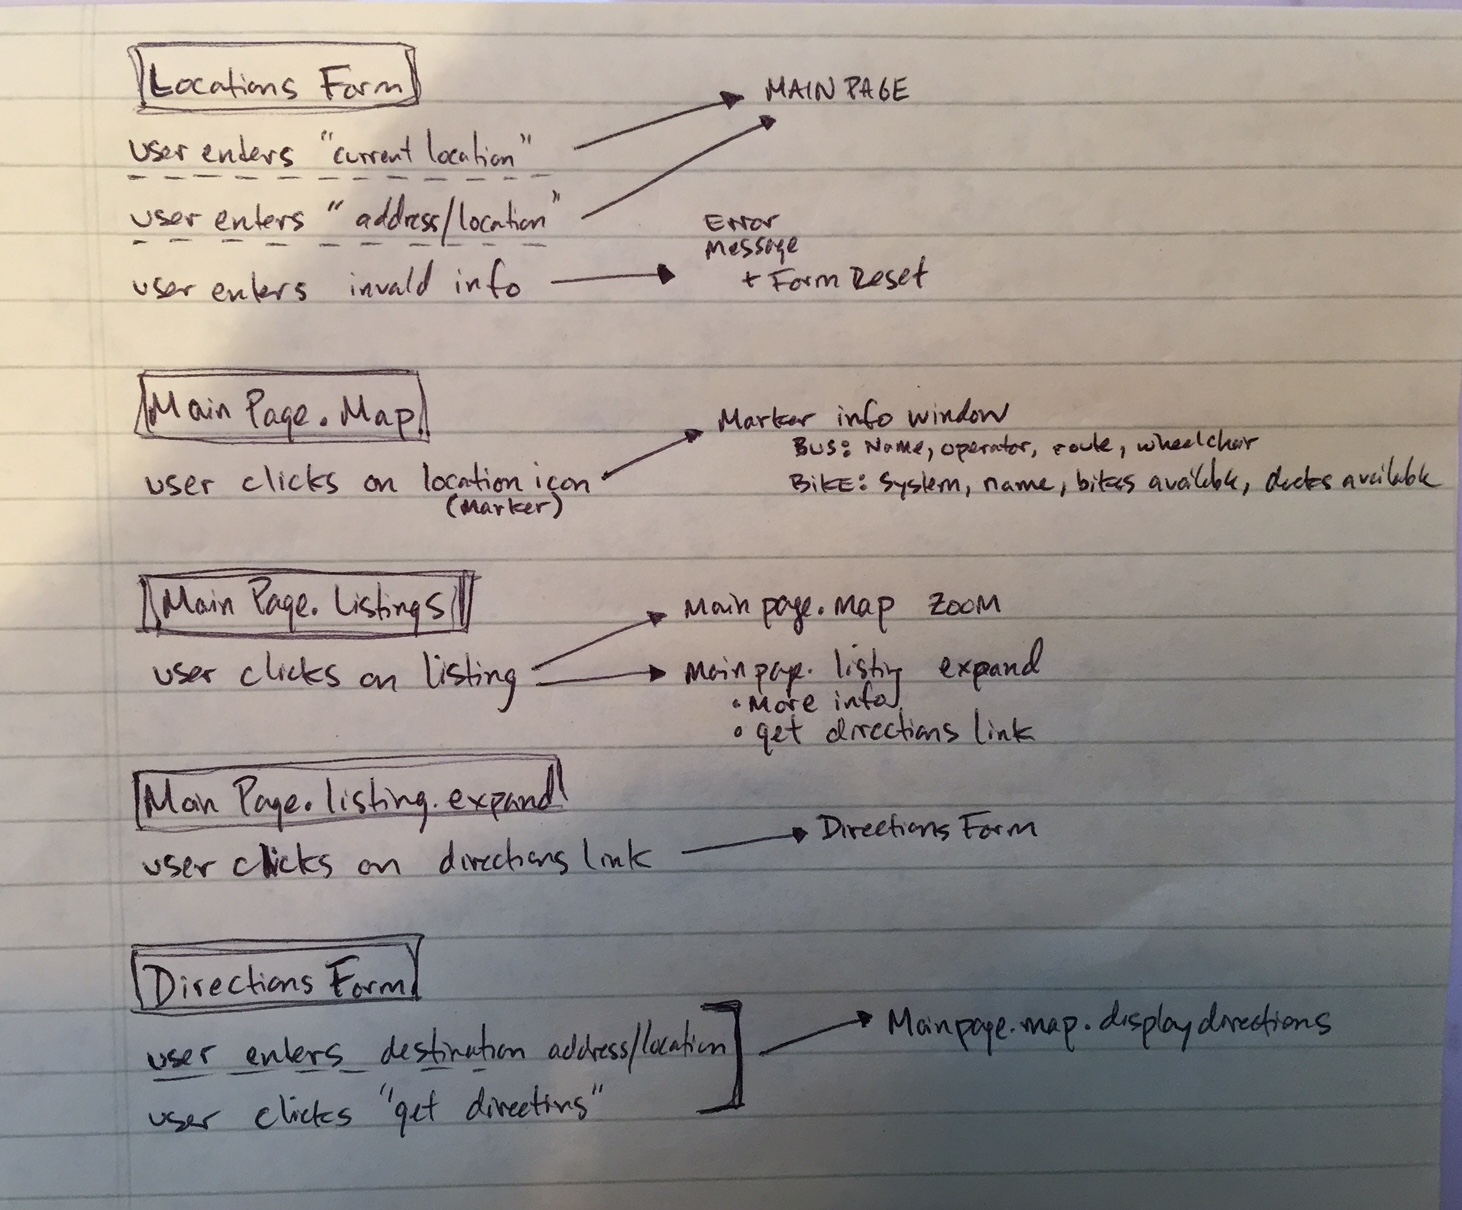 Locations Form
user enters "current location"
MAIN PAGE
user enters "address/location"
user enters invald info
Error
Message
+ Form Reset
Main Page.Map
user clicks on location icon
(Marker)
Marker info window
Bus: Name, operator, route, wheelchair
Bike: System, name, bikes available, docks available
Main Page.Listings
user clicks on listing
Main page.map zoom
Main page.listing expand
• More info
• get directions link
Main Page.listing.expand
user clicks on directions link
Directions Form
Directions Form
user enters destination address/location
user clicks "get directins"
Mainpage.map.displaydirections